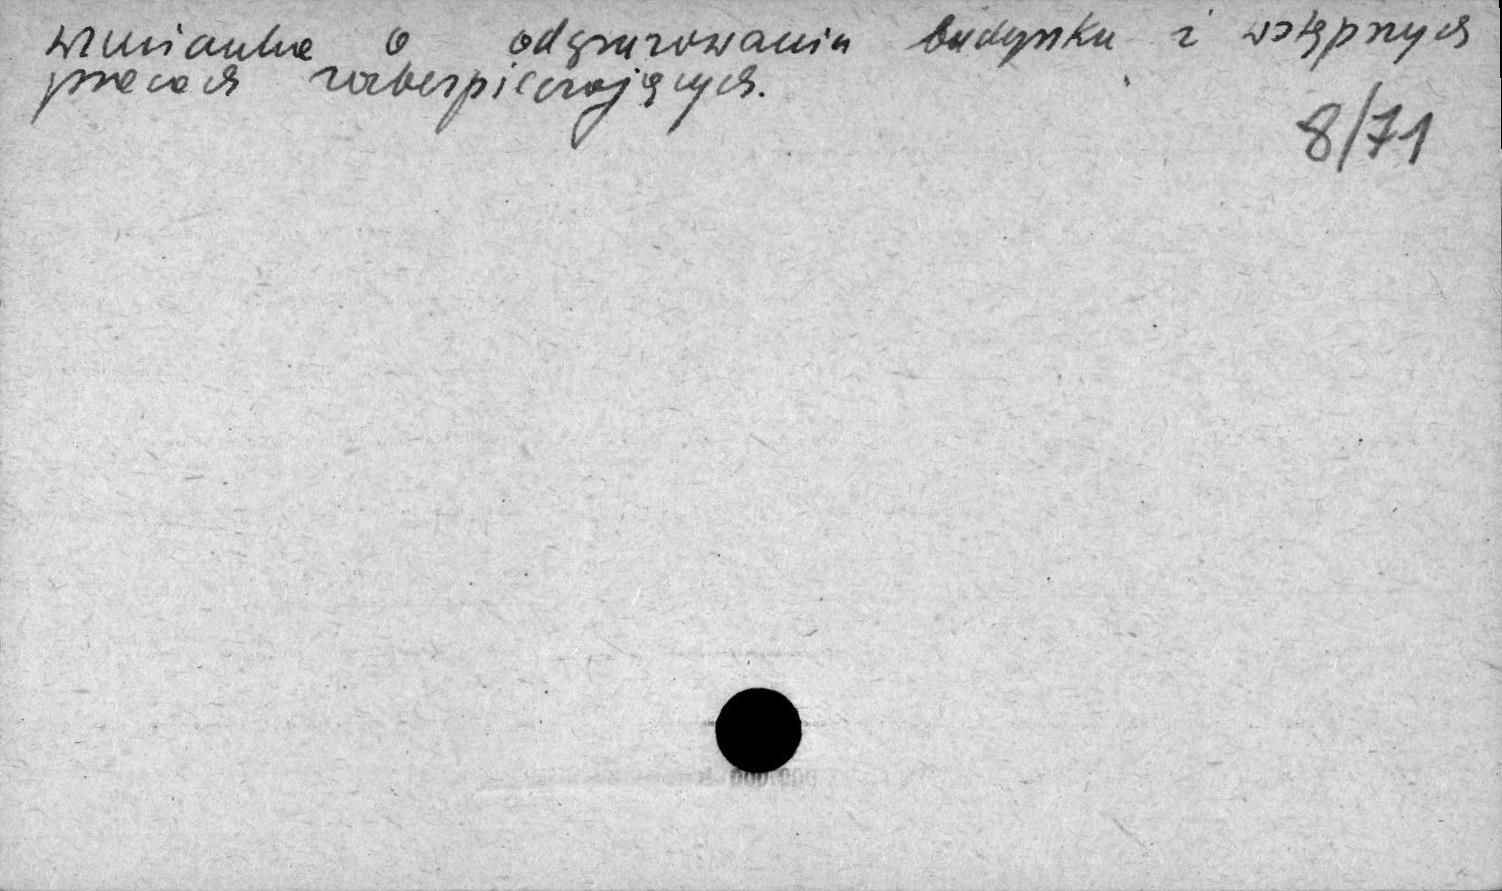 wzmianka o odgruzowaniu budynku i wstępnych
pracach zabezpieczających.
8/71